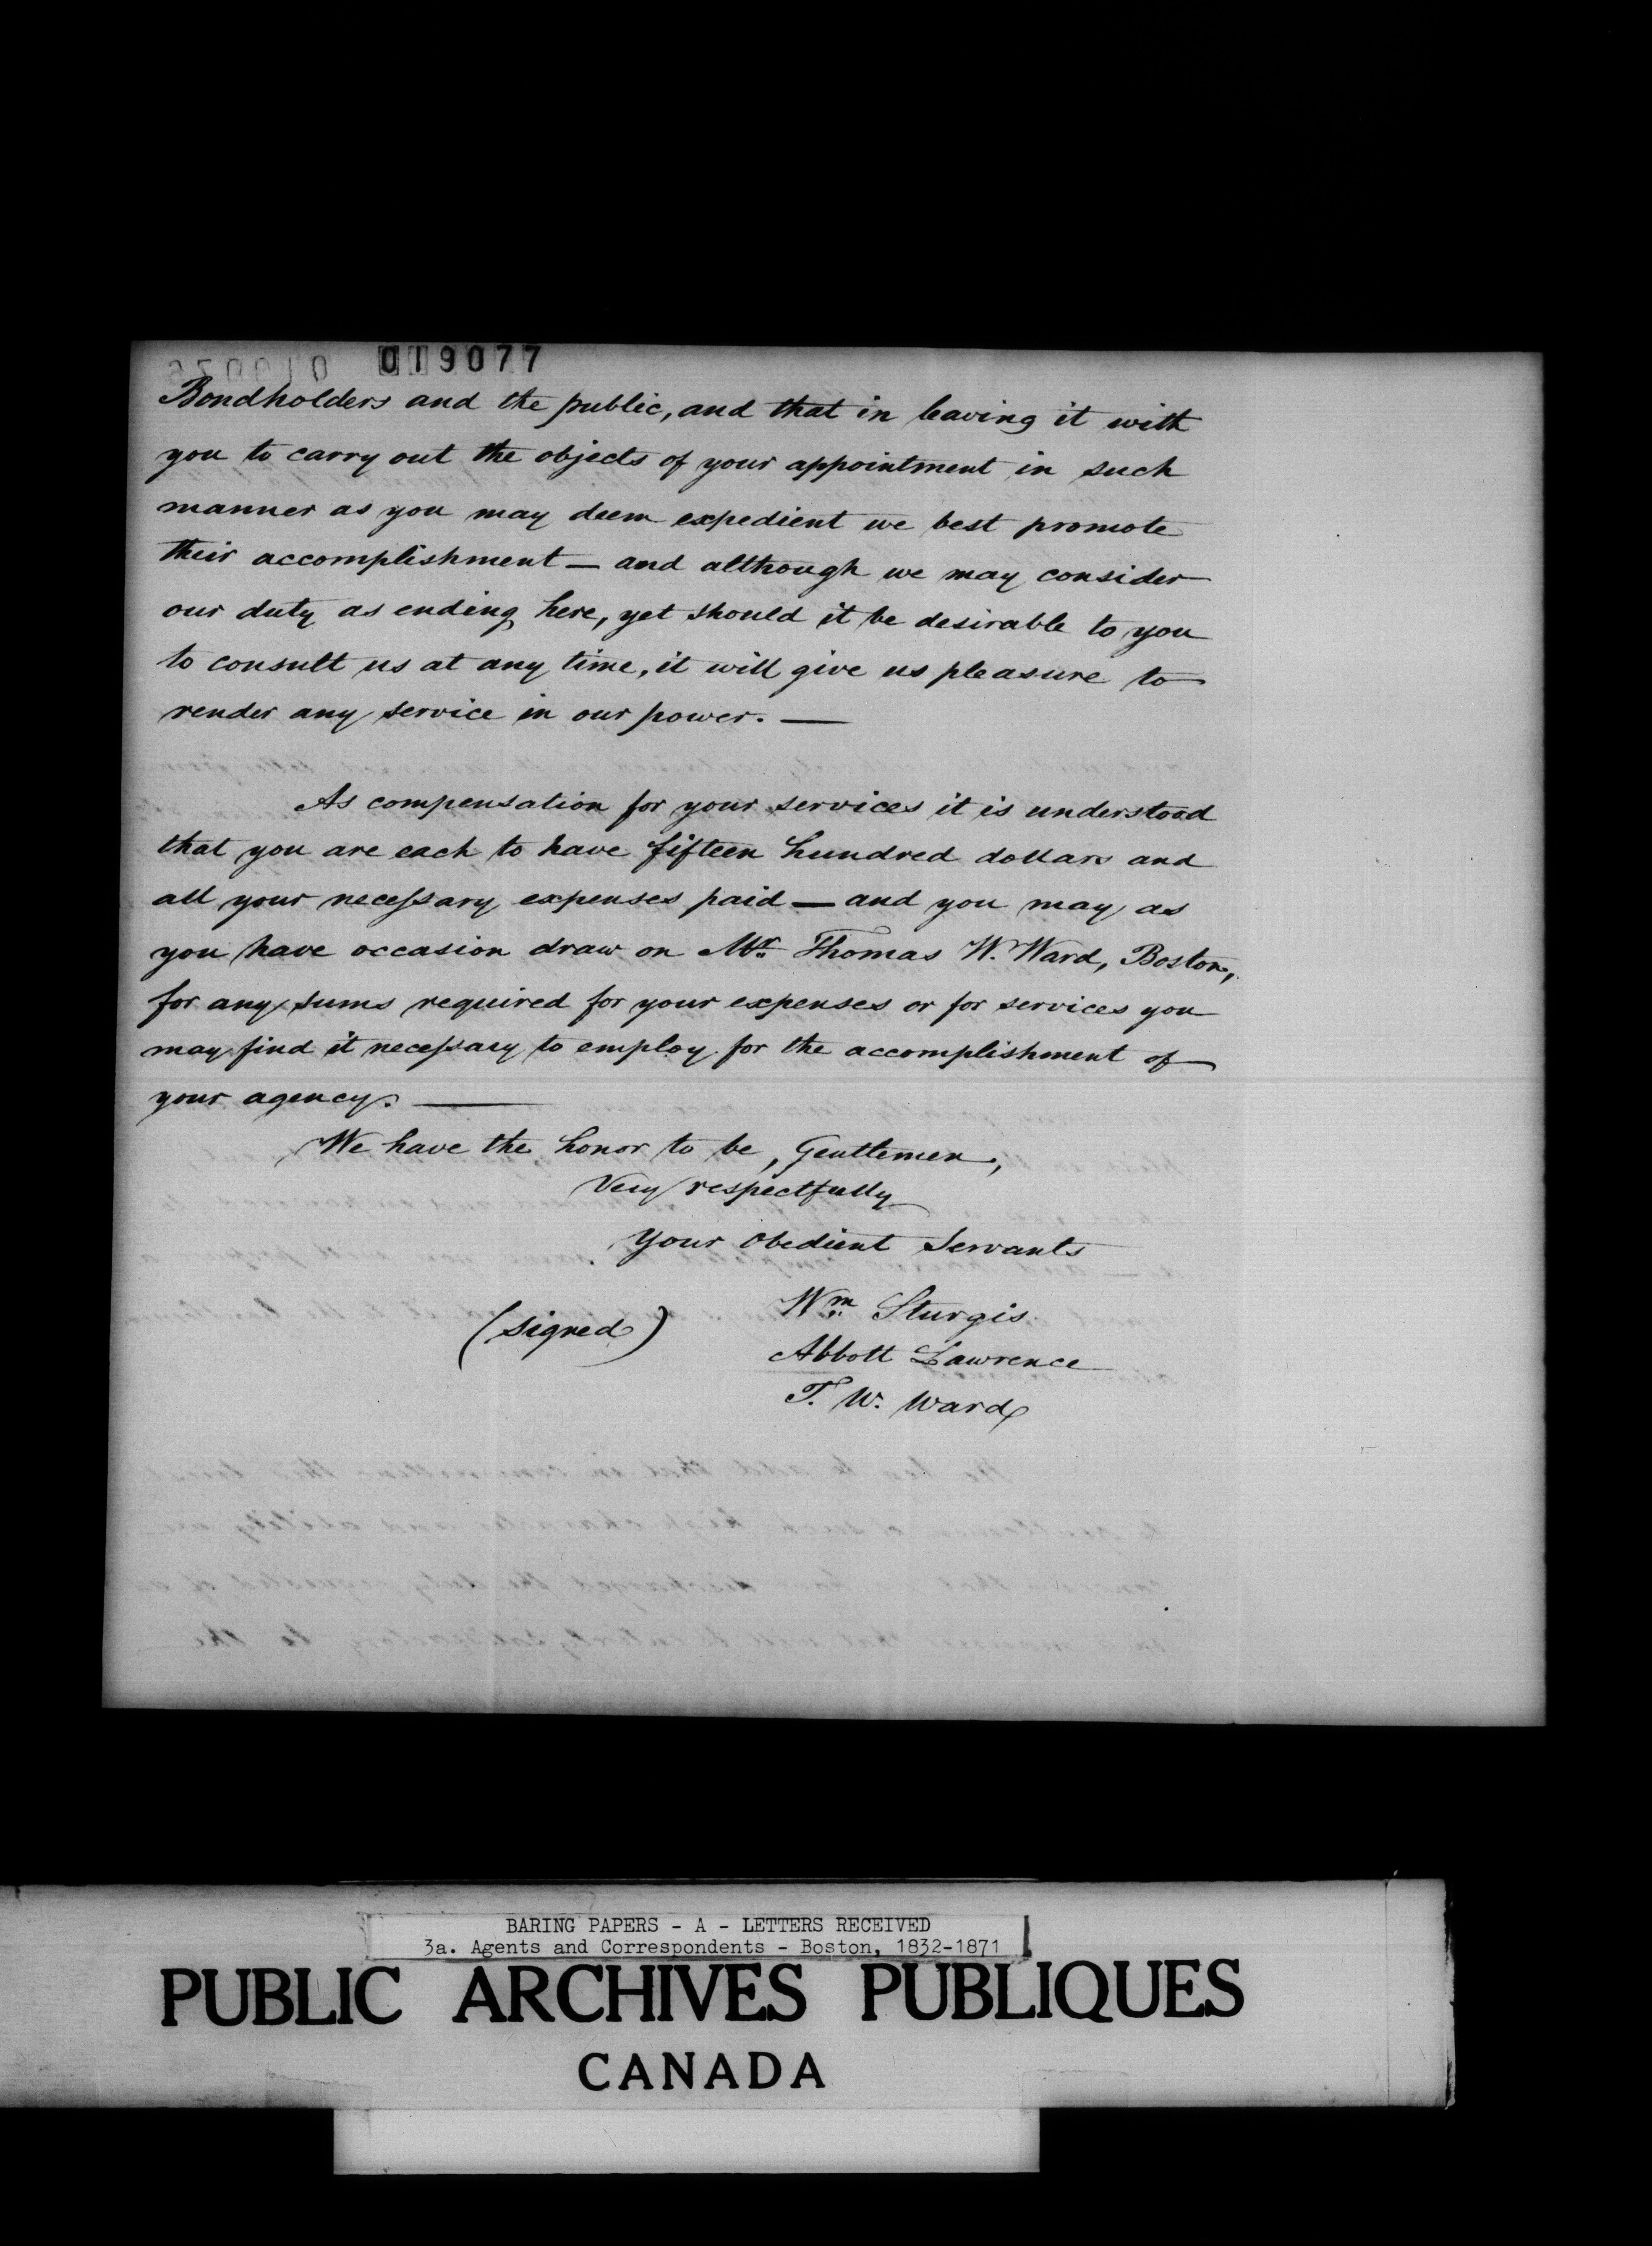 019077
Bondholders and the public, and that in leaving it with
you to carry out the objects of your appointment in such
manner as you may deem expedient we best promote
their accomplishment — and although we may consider
our duty as ending here, yet should it be desirable to you
to consult us at any time, it will give us pleasure to
render any service in our power. —
As compensation for your services it is understood
that you are each to have fifteen hundred dollars and
all your necessary expenses paid — and you may as
you have occasion draw on Mr. Thomas W. Ward, Boston,
for any sums required for your expenses or for services you
may find it necessary to employ for the accomplishment of
your agency. —
We have the honor to be, Gentlemen,
Very respectfully
Your Obedient Servants
(signed) Wm. Sturgis
Abbott Lawrence
T. W. Ward
BARING PAPERS - A - LETTERS RECEIVED
3a. Agents and Correspondents - Boston, 1832-1871
PUBLIC ARCHIVES PUBLIQUES
CANADA